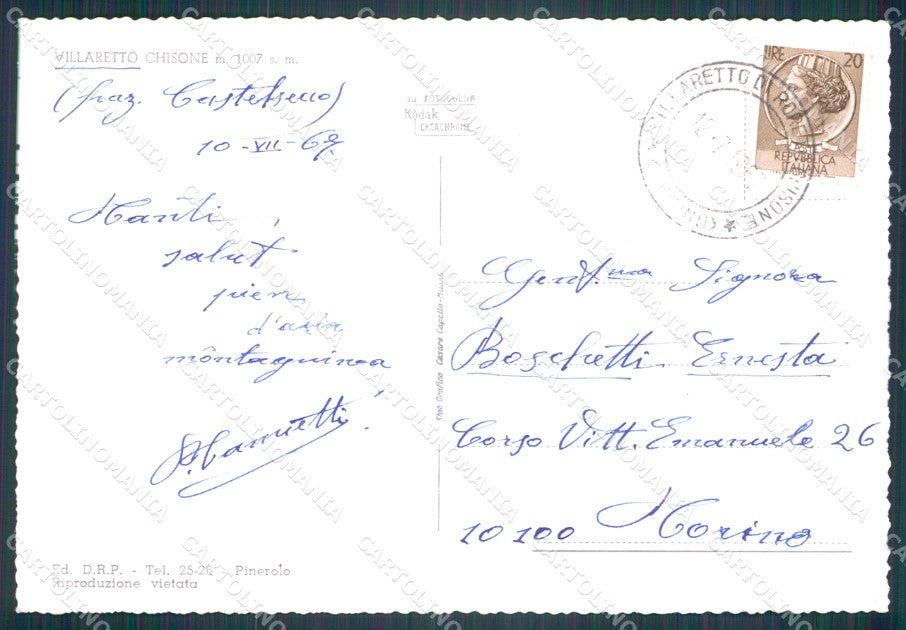 VILLARETTO CHISONE m. 1007 s. m.
(fraz. Castelsecco)
10-VII-69
Tanti
salut
pien
d'aria
môntagninoa
su FOTOCOLOR
Kodak
EKTACHROME
Stab. Grafico Cesare Capello-Milano
IRE 20
REPVBBLICA
ITALIANA
VILLARETTO DI RO
Gent.ma Signora
Boschetti Ernesta
Corso Vitt. Emanuele 26
10100 Torino
Ed. D.R.P. - Tel. 25-26 - Pinerolo
Riproduzione vietata
CARTOLINOMANIA